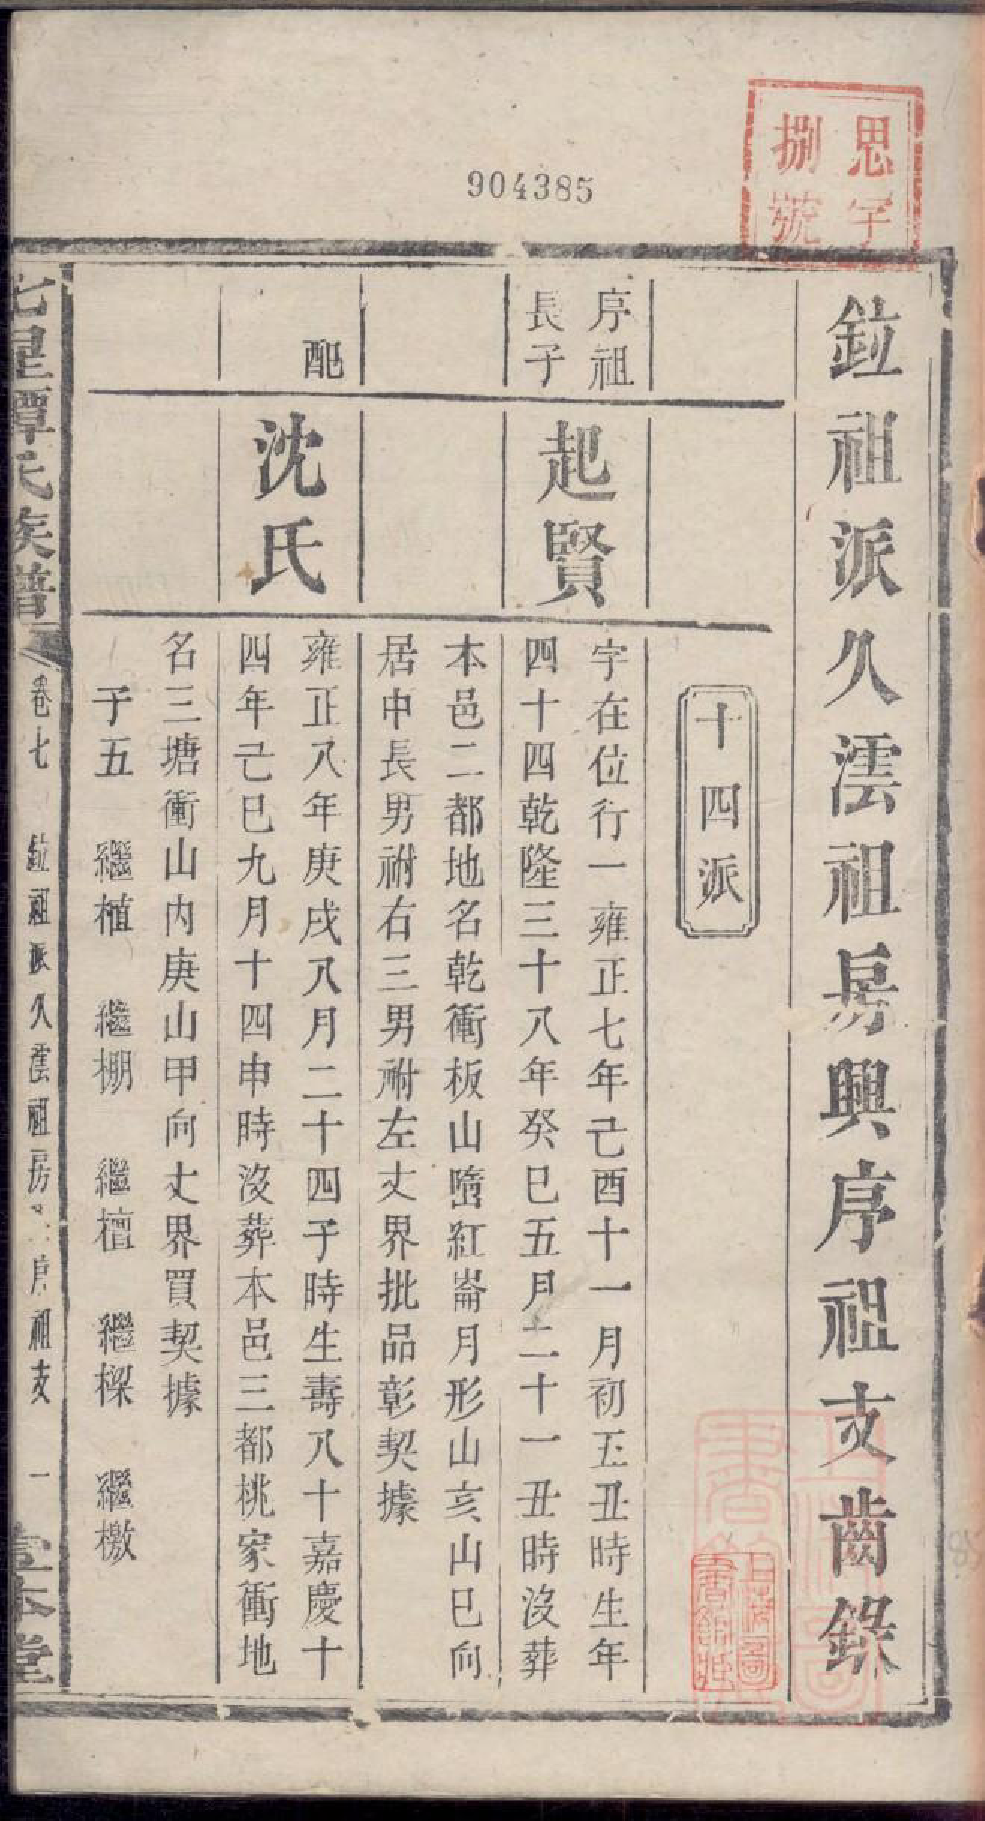 904385
思字
捌號
鉝祖派久澐祖房興序祖支齒錄
十四派
序祖
長子
起賢
字在位行一雍正七年己酉十一月初五丑時生年
四十四乾隆三十八年癸巳五月二十一丑時沒葬
本邑二都地名乾衝板山嘴紅崙月形山亥山巳向
居中長男祔右三男祔左丈界批品彰契據
配
沈氏
雍正八年庚戌八月二十四子時生壽八十嘉慶十
四年己巳九月十四申時沒葬本邑三都桃家衝地
名三塘衝山內庚山甲向丈界買契據
子五 繼植 繼棚 繼檀 繼樑 繼檄
七星譚氏族譜
卷七 鉝祖派久澐祖房興序祖支 一
壹本堂